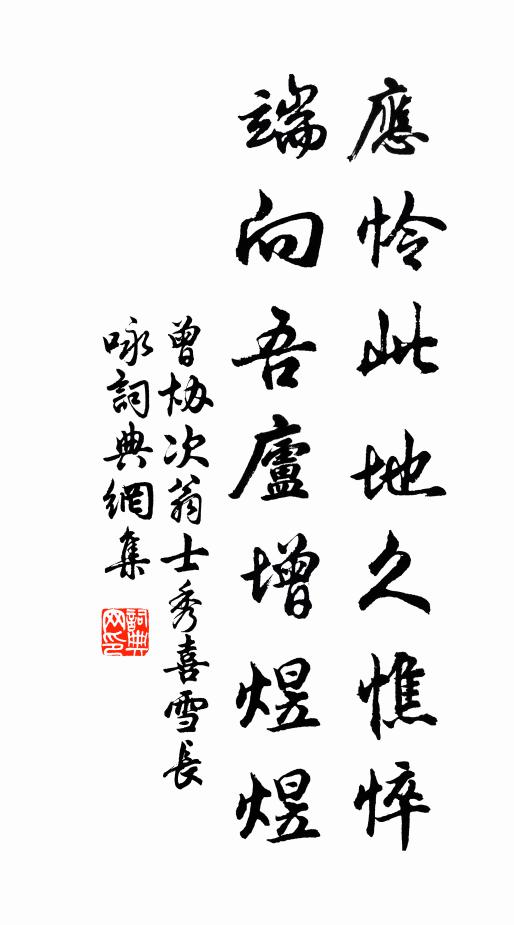 應怜此地久憔悴
端向吾廬增煜煜
曾协次翁士秀喜雪長
咏詞典網集
詞典
网印